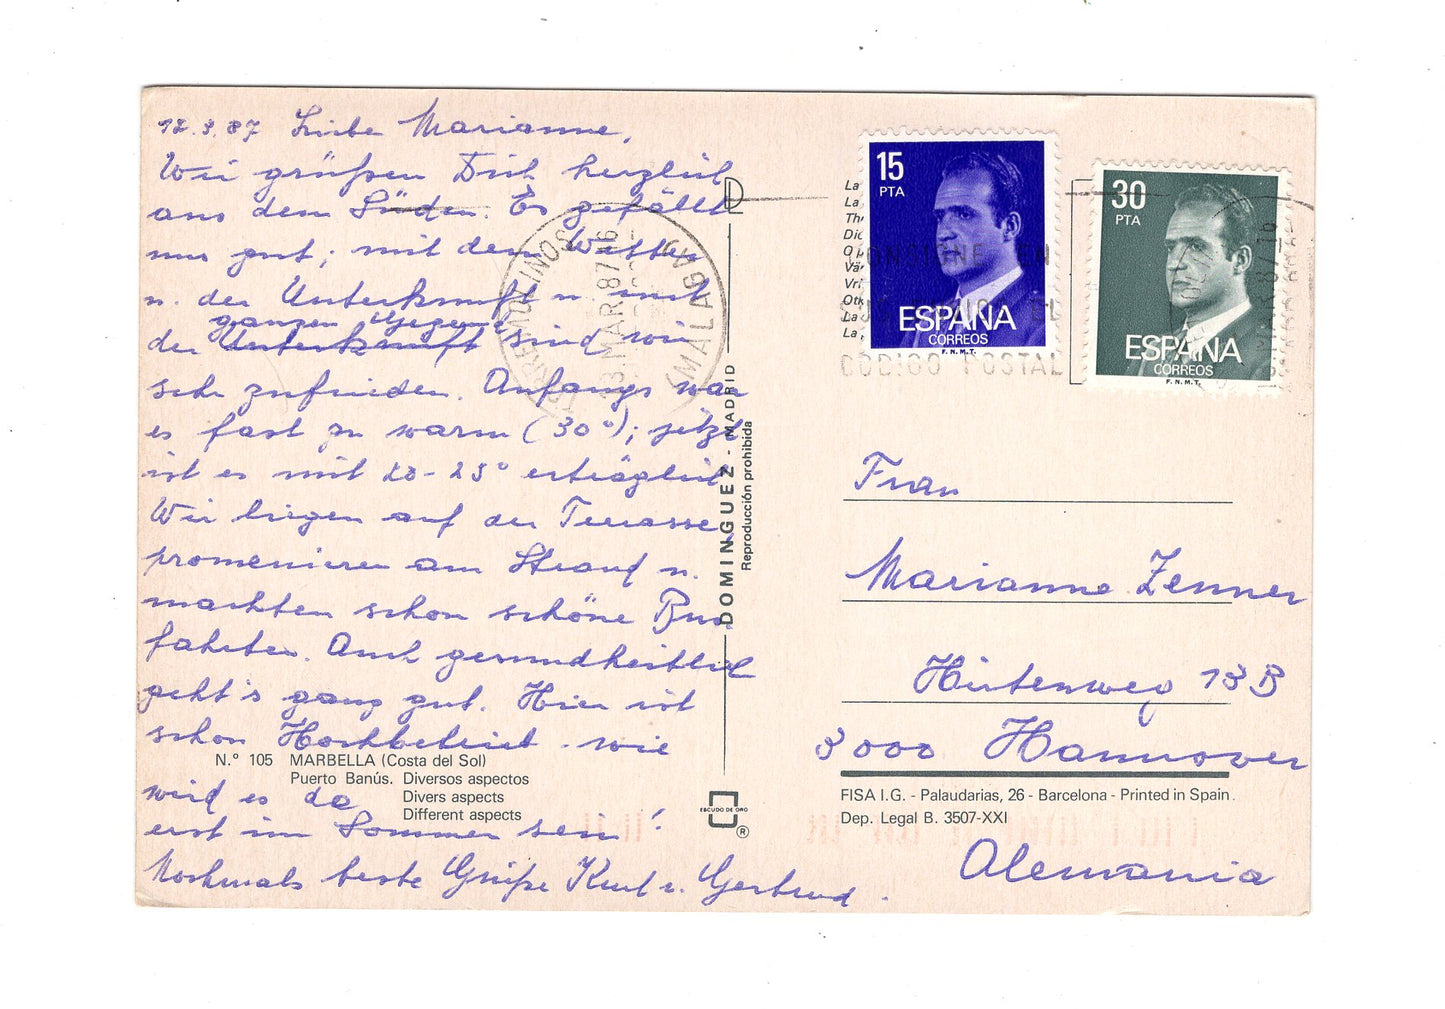 12.3.87 Liebe Marianne,
Wir grüßen Dich herzlich
aus dem Süden. Es gefällt
uns gut; mit dem Wetter
u. der Unterkunft u. mit
ganzen Gegend
der Unterkunft sind wir
sehr zufrieden. Anfangs war
es fast zu warm (30°); jetzt
ist es mit 20-25° erträglich
Wir liegen auf der Terrasse,
promenieren am Strand u.
machten schon schöne Bus
fahrten. Auch gesundheitlich
geht's ganz gut. Hier ist
schon Hochbetrieb. wie
wird es da
erst im Sommer sein!
Nochmals beste Grüße Kurt u. Gertrud.
N.° 105 MARBELLA (Costa del Sol)
Puerto Banús. Diversos aspectos
Divers aspects
Different aspects
TORREMOLINOS (MALAGA)
13 MAR 87 16
DOMINGUEZ - MADRID
Reproducción prohibida
ESCUDO DE ORO
®
15
PTA
ESPAÑA
CORREOS
F.N.M.T.
30
PTA
ESPAÑA
CORREOS
F.N.M.T.
CONSIGNE EN
CODIGO POSTAL
Frau
Marianne Zenner
Hirtenweg 13 B
3000 Hannover
FISA I.G. - Palaudarias, 26 - Barcelona - Printed in Spain.
Dep. Legal B. 3507-XXI
Alemania